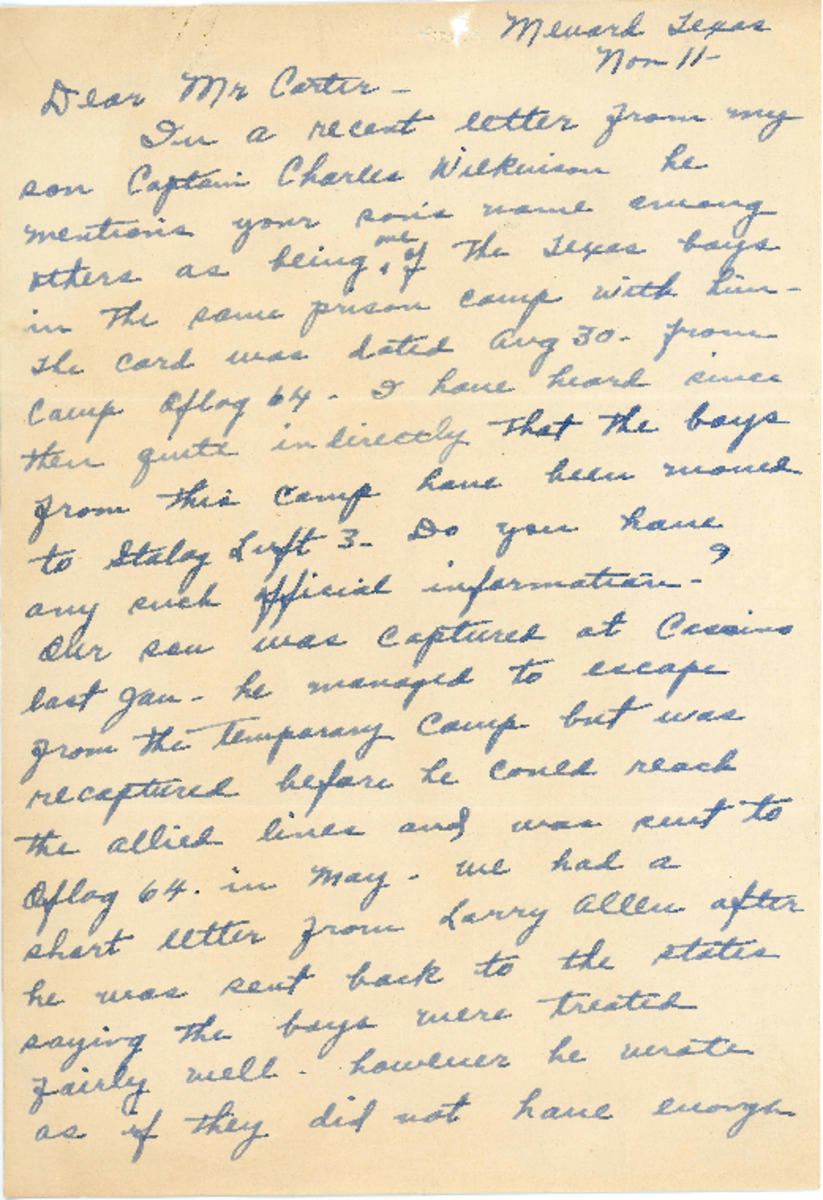 Menard Texas
Nov 11-
Dear Mr Carter -
In a recent letter from my
son Captain Charles Wilkinson he
mentions your son's name among
others as being one of the Texas boys
in the same prison camp with him -
The card was dated Aug 30 - from
Camp Oflag 64 - I have heard since
then quite indirectly that the boys
from this camp have been moved
to Stalag Luft 3 - Do you have
any such official information - ?
Our son was captured at Cassino
last Jan - he managed to escape
from the temporary camp but was
recaptured before he could reach
the allied lines and was sent to
Oflag 64. in May - we had a
short letter from Larry Allen after
he was sent back to the states
saying the boys were treated
fairly well - however he wrote
as if they did not have enough